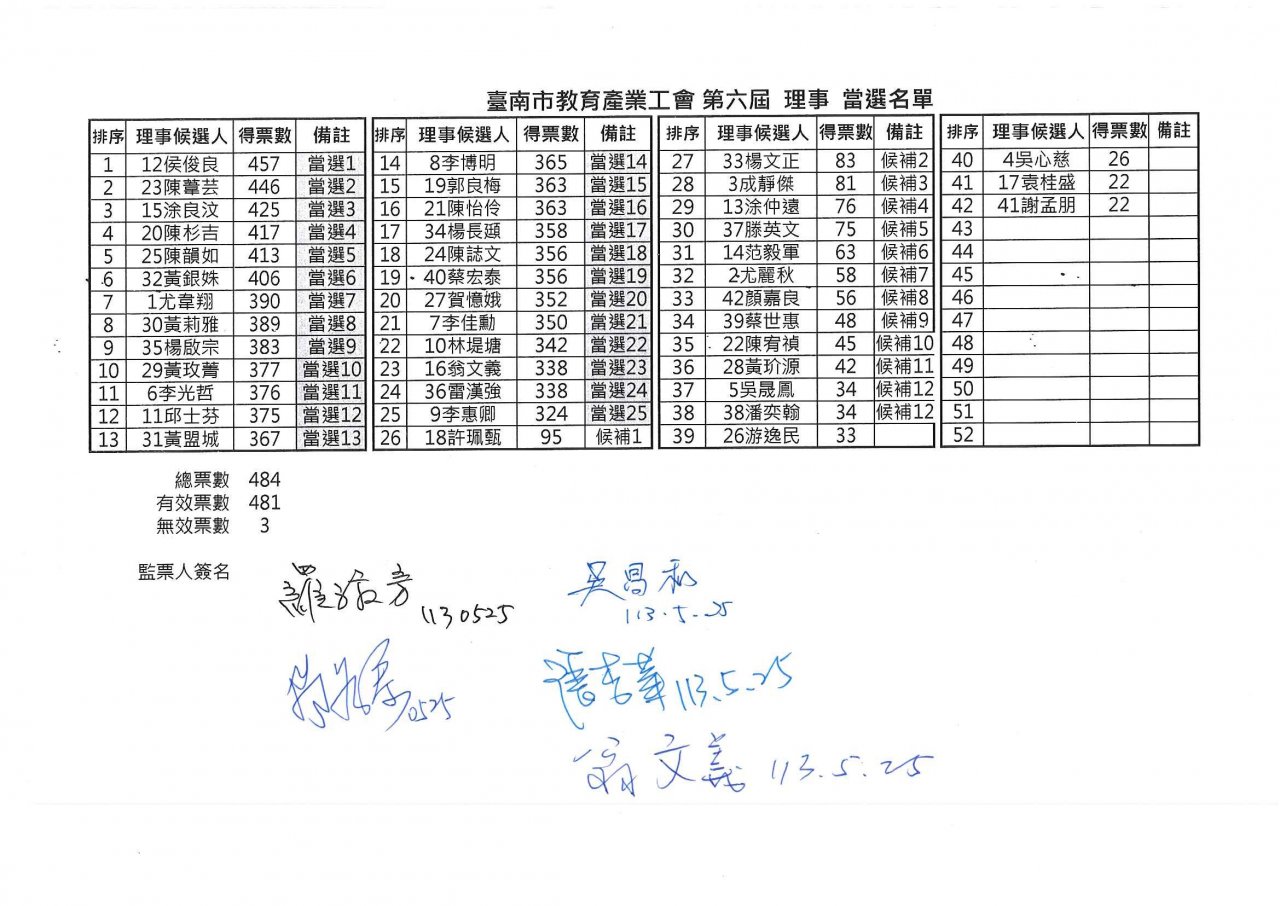 臺南市教育產業工會 第六屆 理事 當選名單
排序 理事候選人 得票數 備註
1 12侯俊良 457 當選1
2 23陳葦芸 446 當選2
3 15涂良汶 425 當選3
4 20陳杉吉 417 當選4
5 25陳韻如 413 當選5
6 32黃銀姝 406 當選6
7 1尤韋翔 390 當選7
8 30黃莉雅 389 當選8
9 35楊啟宗 383 當選9
10 29黃玫菁 377 當選10
11 6李光哲 376 當選11
12 11邱士芬 375 當選12
13 31黃盟城 367 當選13
排序 理事候選人 得票數 備註
14 8李博明 365 當選14
15 19郭良梅 363 當選15
16 21陳怡伶 363 當選16
17 34楊長頲 358 當選17
18 24陳誌文 356 當選18
19 40蔡宏泰 356 當選19
20 27賀憶娥 352 當選20
21 7李佳勳 350 當選21
22 10林堤塘 342 當選22
23 16翁文義 338 當選23
24 36雷漢強 338 當選24
25 9李惠卿 324 當選25
26 18許珮甄 95 候補1
排序 理事候選人 得票數 備註
27 33楊文正 83 候補2
28 3成靜傑 81 候補3
29 13涂仲遠 76 候補4
30 37滕英文 75 候補5
31 14范毅軍 63 候補6
32 2尤麗秋 58 候補7
33 42顏嘉良 56 候補8
34 39蔡世惠 48 候補9
35 22陳宥禎 45 候補10
36 28黃玠源 42 候補11
37 5吳晟鳳 34 候補12
38 38潘奕翰 34 候補12
39 26游逸民 33
排序 理事候選人 得票數 備註
40 4吳心慈 26
41 17袁桂盛 22
42 41謝孟朋 22
43
44
45
46
47
48
49
50
51
52
總票數 484
有效票數 481
無效票數 3
監票人簽名
羅 1130525
吳昌 113.5.25
0525
113.5.25
翁文義 113.5.25